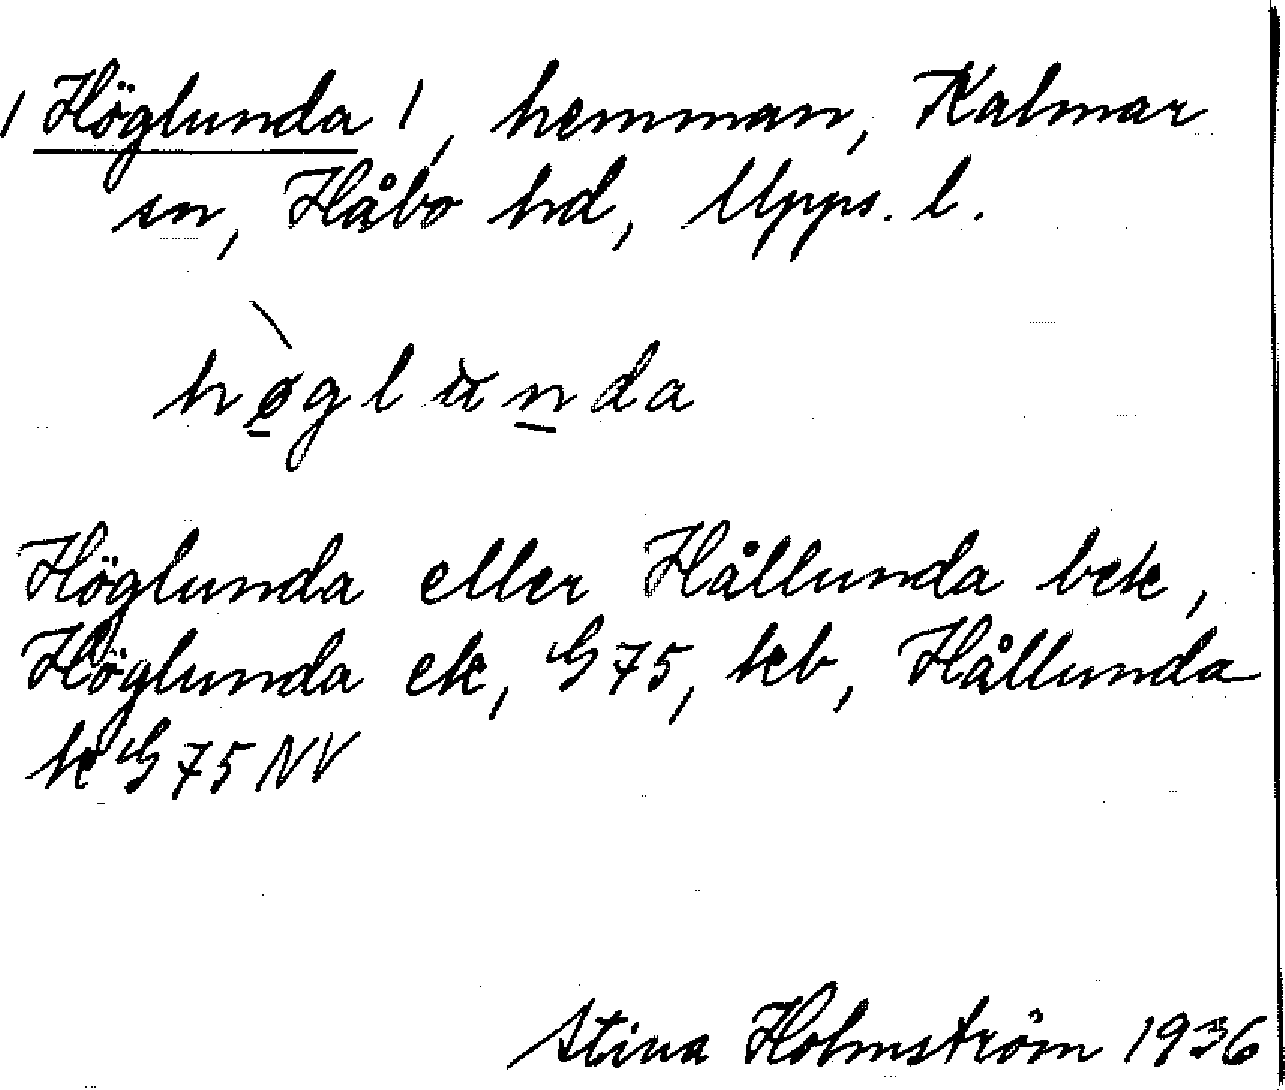 / Höglunda /, hemman, Kalmar
sn, Håbo hd, Upps. l.
hø̀glunda
Höglunda eller Hållunda bek,
Höglunda ek, G 75, kb, Hållunda
k G 75 NV
Stina Holmström 1936